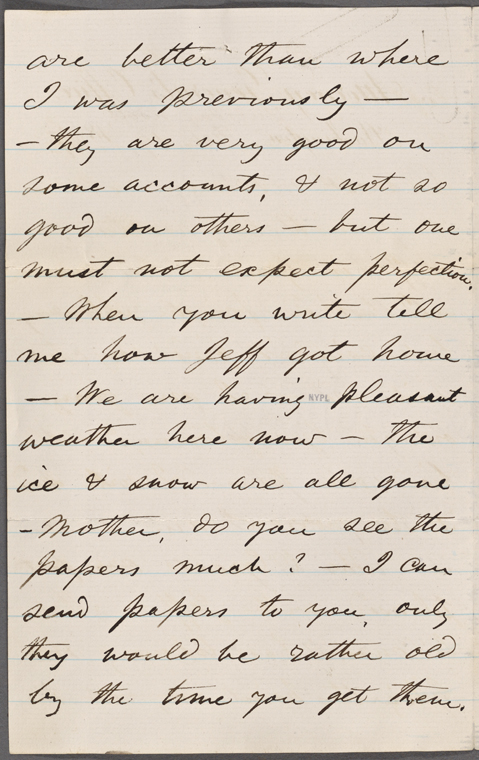 are better than where
I was previously —
- they are very good on
some accounts, & not so
good on others — but one
must not expect perfection.
— When you write tell
me how Jeff got home
— We are having NYPL pleasant
weather here now — the
ice & snow are all gone
- Mother, do you see the
papers much? — I can
send papers to you, only
they would be rather old
by the time you get them.